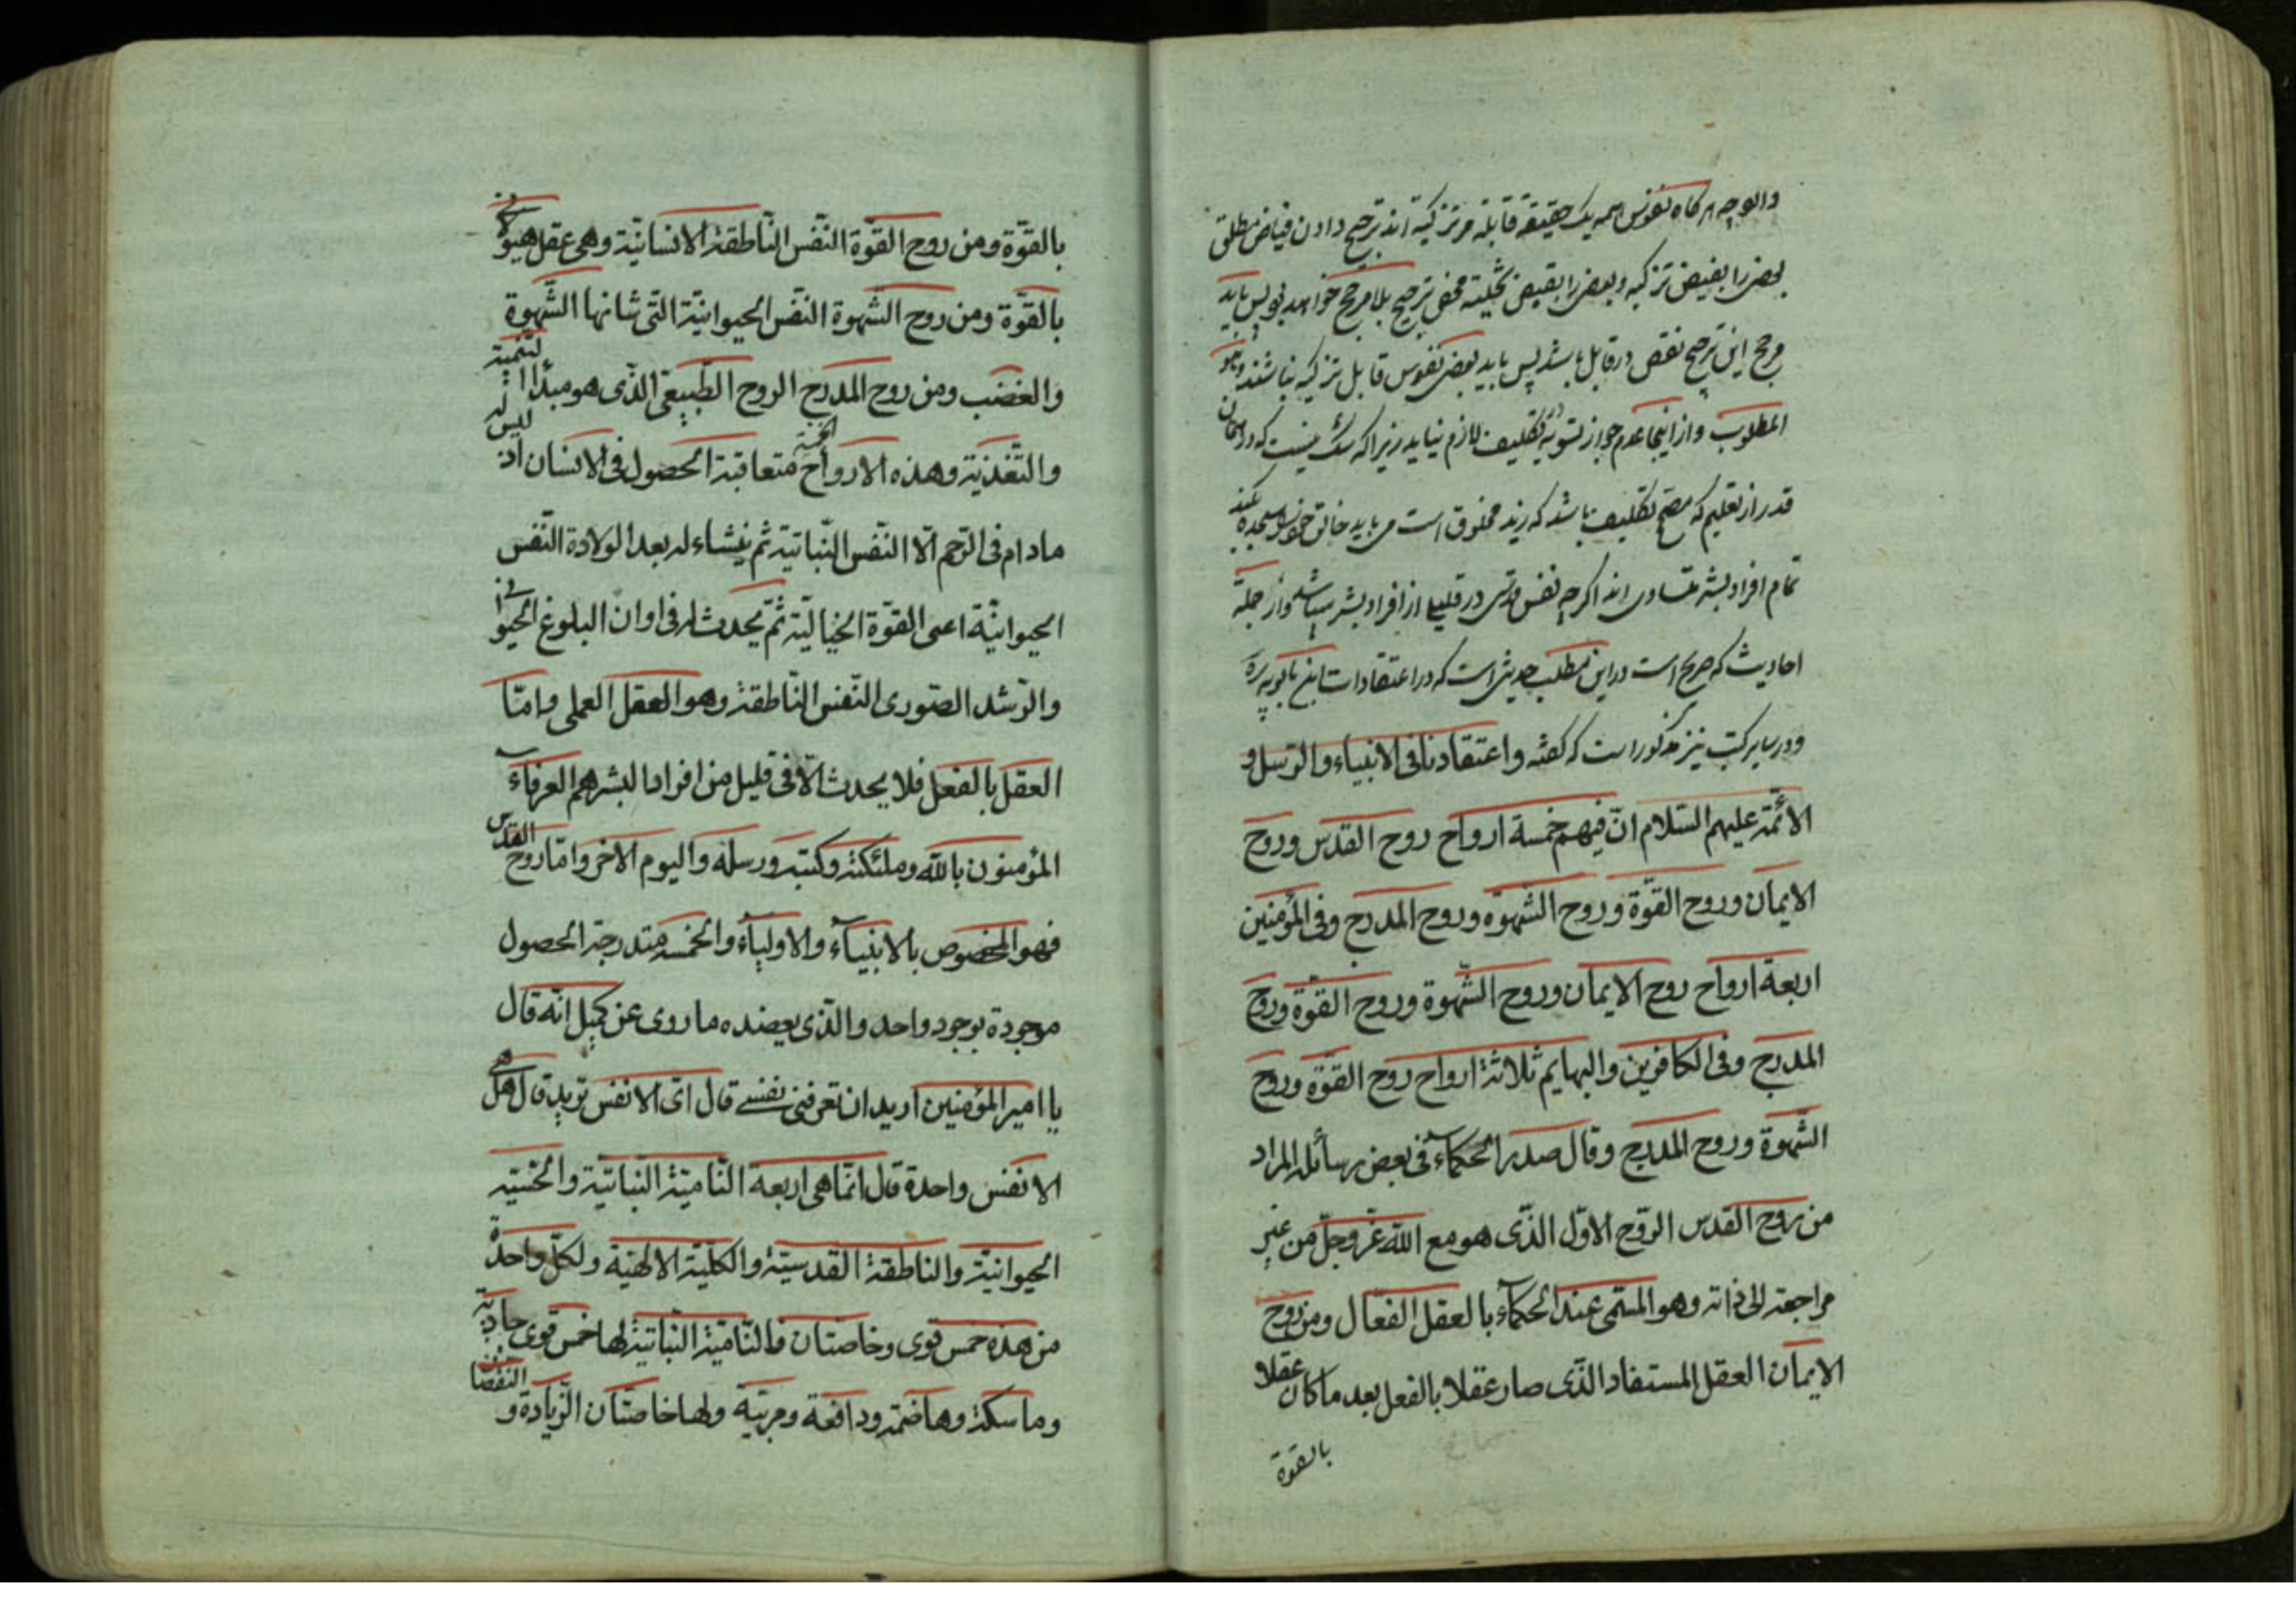 والوجه هر کاه نفوس همه یک حقیقة قابلة مر تزکیة اند ترجیح دادن فیاض مطلق
بعض را بفیض تزکیه و بعض را بقیض تخلیته محض ترجیح بلا مرجح خواهد بود پس باید
مرجح این ترجیح نقص در قابل باشد پس باید بعض نفوس قابل تزکیه نباشند وهو
المطلوب و از اینجا عدم جواز تسویه تکلیف لازم نیاید زیرا که شک نیست که در امکان
قدر از تعلیم که مصحح تکلیف باشد که زید مخلوق است می باید خالق خود را سجده کند
تمام افراد بشر متساوی اند اکرچه نفس قدسی در قلیلی از افراد بشر میباشد و از جملة
احادیث که صریح است در این مطلب حدیثی است که در اعتقادات ابن بابویه ره
و در سایر کتب نیز مذکور است که کفته واعتقادنا فی الانبیاء والرسل و
الائمة علیهم السلام انّ فیهم خمسة ارواح روح القدس وروح
الایمان وروح القوّة وروح الشهوه وروح المدرج وفی المؤمنین
اربعة ارواح روح الایمان وروح الشّهوة وروح القوّة وروح
المدرج وفی الکافرین والبهایم ثلاثة ارواح روح القوّة وروح
الشّهوة وروح المدرج وقال صدر الحکماء فی بعض رسائله المراد
من روح القدس الرّوح الاوّل الذّی هو مع اللّه عزّ وجلّ من غیر
مراجعة الی ذاته وهو المسمّی عند الحکماء بالعقل الفعّال ومن روح
الایمان العقل المستفاد الذّی صار عقلا بالفعل بعد ما کان عقلا
بالقوة
بالقوّة ومن روح القوّة النّفس النّاطقة الانسانیّة وهی عقل هیولانی
بالقوّة ومن روح الشّهوة النّفس الحیوانیّة التّی شانها الشّهوة
والغضب ومن روح المدرج الروح الطّبیعی الذّی هو مبدأ التنمیة
والتّغذیة وهذه الارواح الخمسة متعاقبة الحصول فی الانسان اذ لیس له
مادام فی الرّحم الّا النّفس النّباتیة ثم ینشاء له بعد الولادة النّفس
الحیوانیّة اعنی القوّة الخیالیّة ثمّ یحدث له فی اوان البلوغ الحیوانی
والرّشد الصّوری النّفس النّاطقة وهو العقل العملی وامّا
العقل بالفعل فلا یحدث الّا فی قلیل من افراد البشر هم العرفاء
المؤمنون باللّه وملئکته وکتبه ورسله والیوم الاخر وامّا روح القدس
فهو المخصوص بالانبیاء والاولیاء والخمسه متدرجة الحصول
موجودة بوجود واحد والذّی یعضده ما روی عن کمیل انّه قال
یا امیر المؤمنین ارید ان تعرفنی نفسی قال ایّ الانفس ترید قال هل هی
الا نفس واحدة قال انّما هی اربعة النّامیّة النّباتیّة والحسّیّه
الحیوانیّة والناطقة القدسیّة والکلّیّة الالهیّة ولکلّ واحدة
من هذه خمس قوی وخاصتان فالنّامیّة النّباتیّة لها خمس قوی جاذبة
وماسکة وهاضمة ودافعة ومربّیة ولها خاصّتان الزّیادة و النقصان